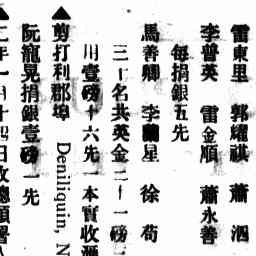 雷東里　郭耀祺　蕭泗
李普英　雷金順　蕭永善
每捐銀五先
馬善卿　李蘭星　徐荀
三十名共英金二十一磅
川壹磅十六先一本實收
▲剪打利郡埠　Deniliquin, N
阮寵晃捐銀壹磅一先